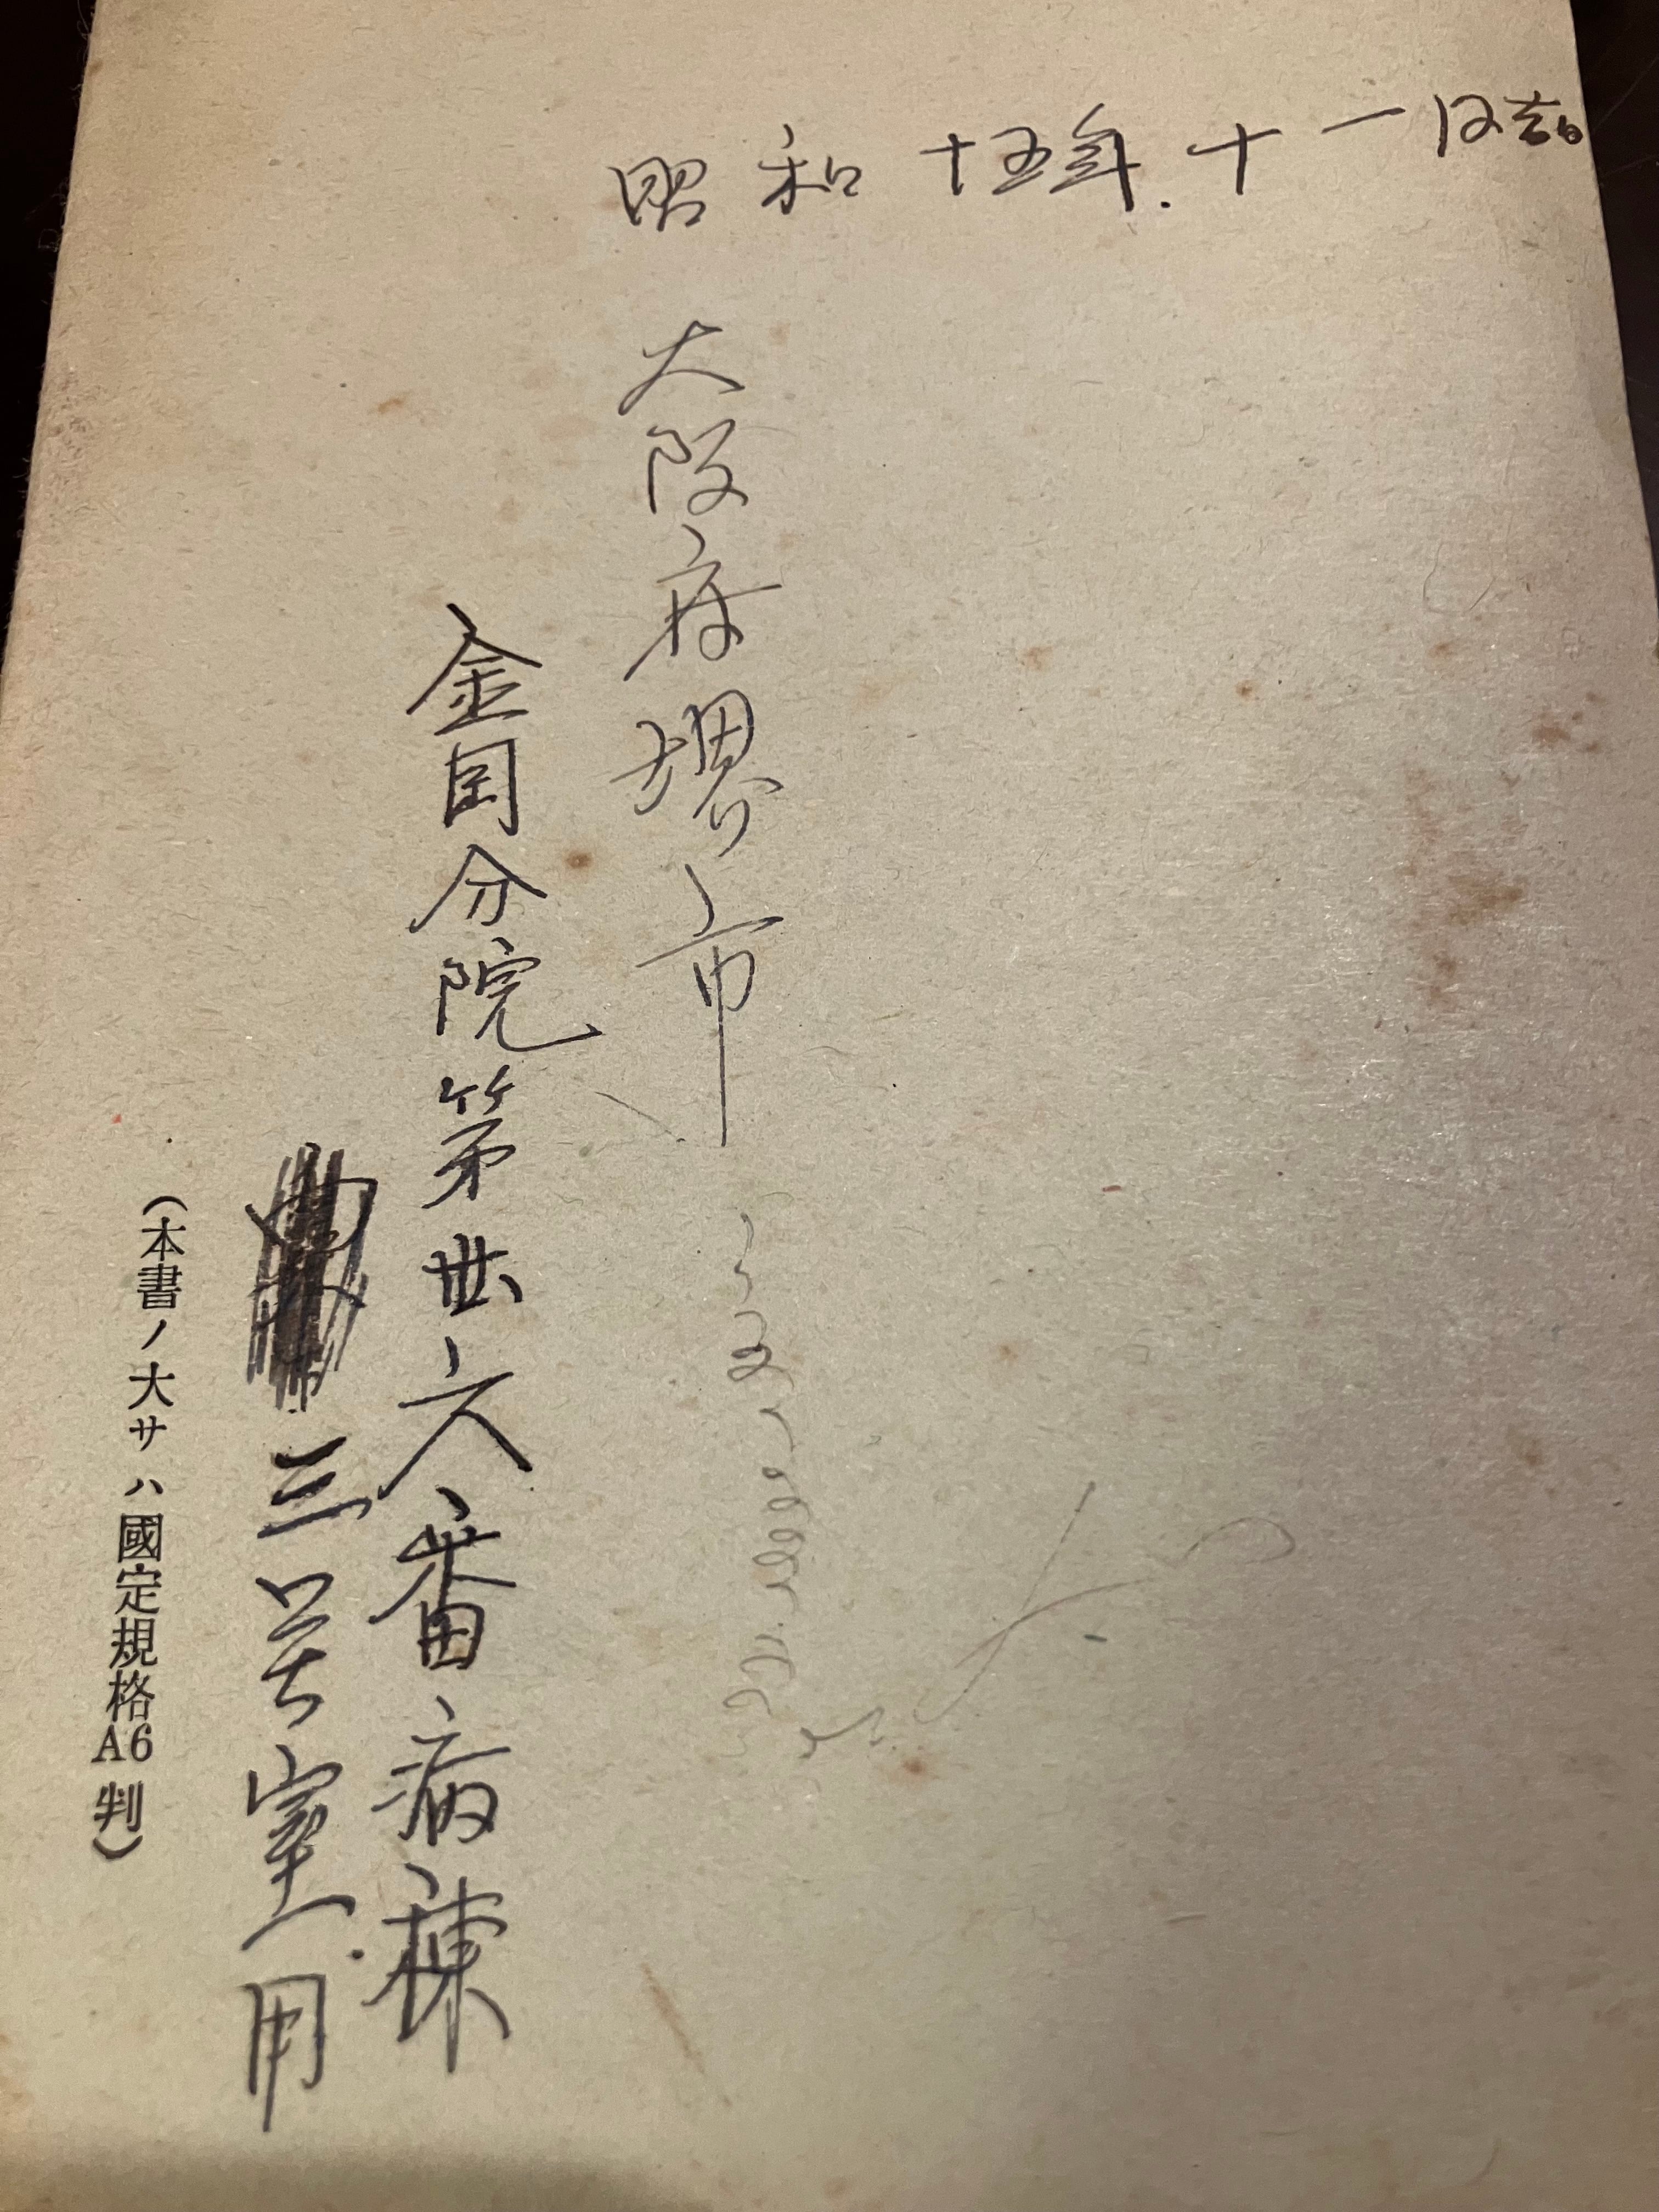 昭和十五年.十一月吉日
大阪府堺市
金岡分院第丗六番病棟
三号室用
（本書ノ大サハ國定規格A6判）